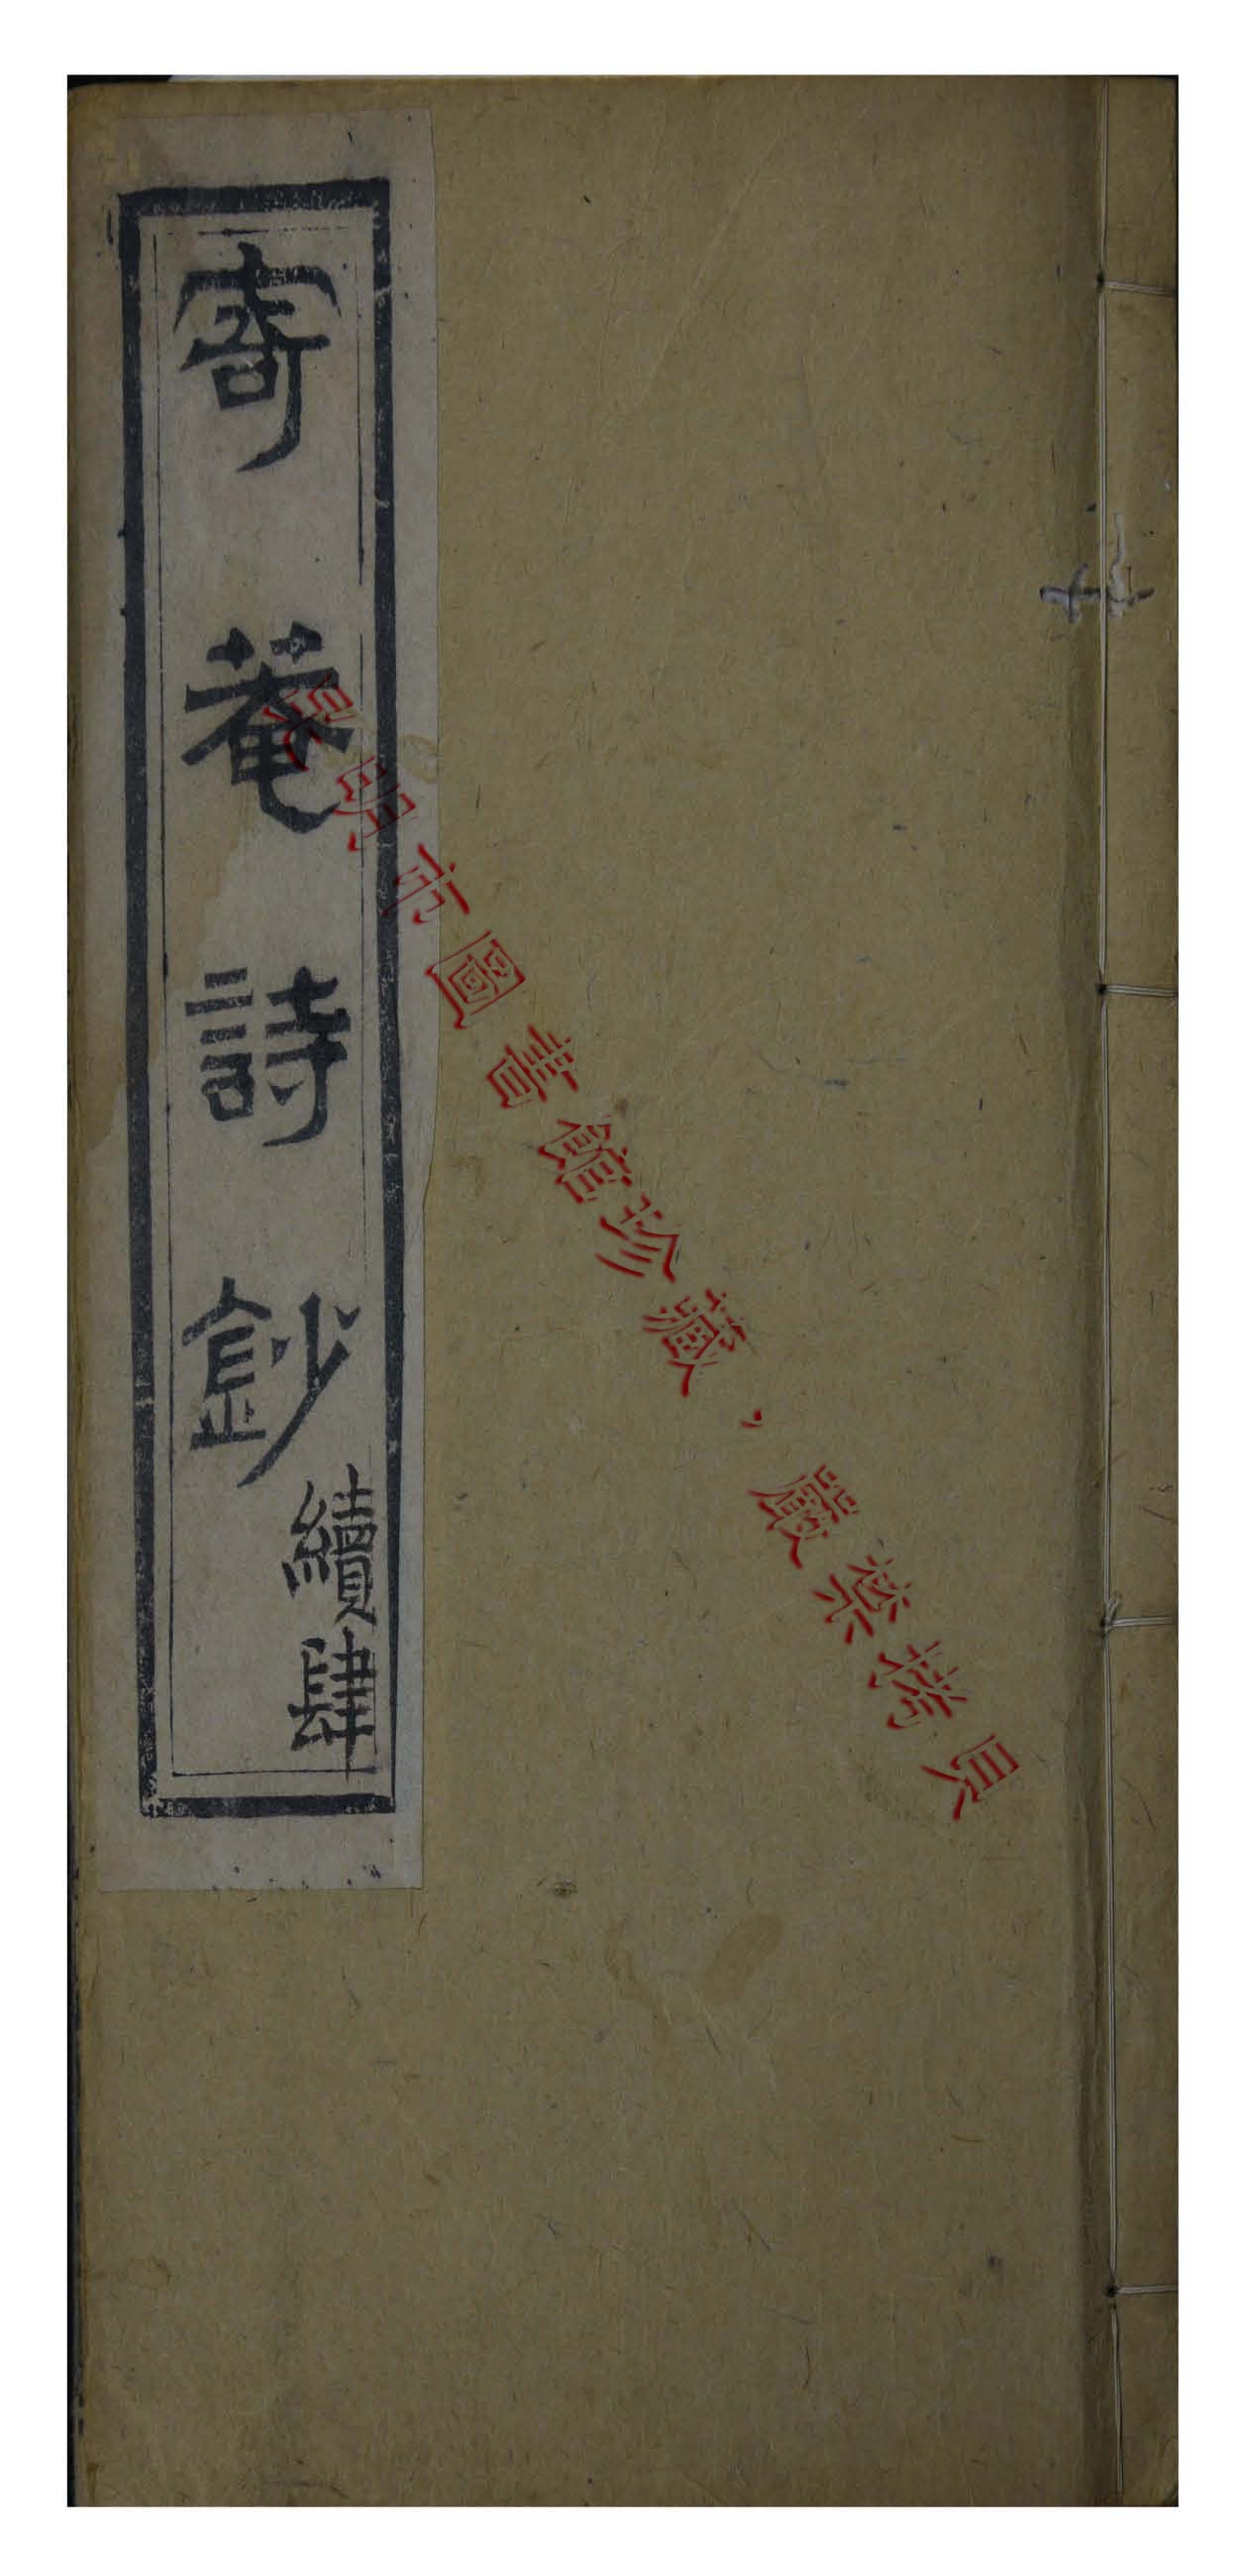 寄菴詩鈔
續肆
昆明市圖書館珍藏，嚴禁拷貝